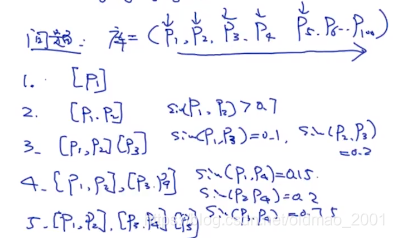 问题: 库=(P₁, P₂, P₃, P₄ P₅, P₆...P₁₀₀)
1. [P₁]
2. [P₁, P₂] sim(P₁, P₂)>0.7
3. [P₁, P₂] [P₃] sim(P₁, P₃)=0.1, sim(P₂, P₃)=0.2
4. [P₁, P₂], [P₃, P₄] sim(P₁, P₄)=0.15
sim(P₂, P₄)=0.2
5. [P₁, P₂], [P₃, P₄] [P₅] sim(P₃, P₄)=0.75